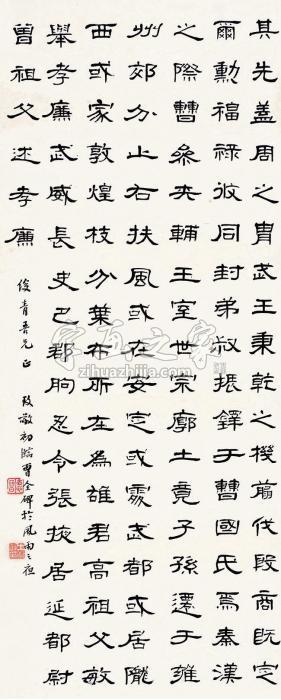 其先蓋周之胄武王秉乾之機翦伐殷商既定
爾勳福祿攸同封弟叔振鐸于曹國氏焉秦漢
之際曹參夾輔王室世宗廓土竟子孫遷于雍
州郊分止右扶風或在安定或處武都或居隴
西或家敦煌枝分葉布所在為雄君高祖父敏
舉孝廉武威長史巴郡朐忍令張掖居延都尉
曾祖父述孝廉
俊青吾兄正 敬初臨曹全碑於風雨之夜
字画之家
zihuazhijia.com